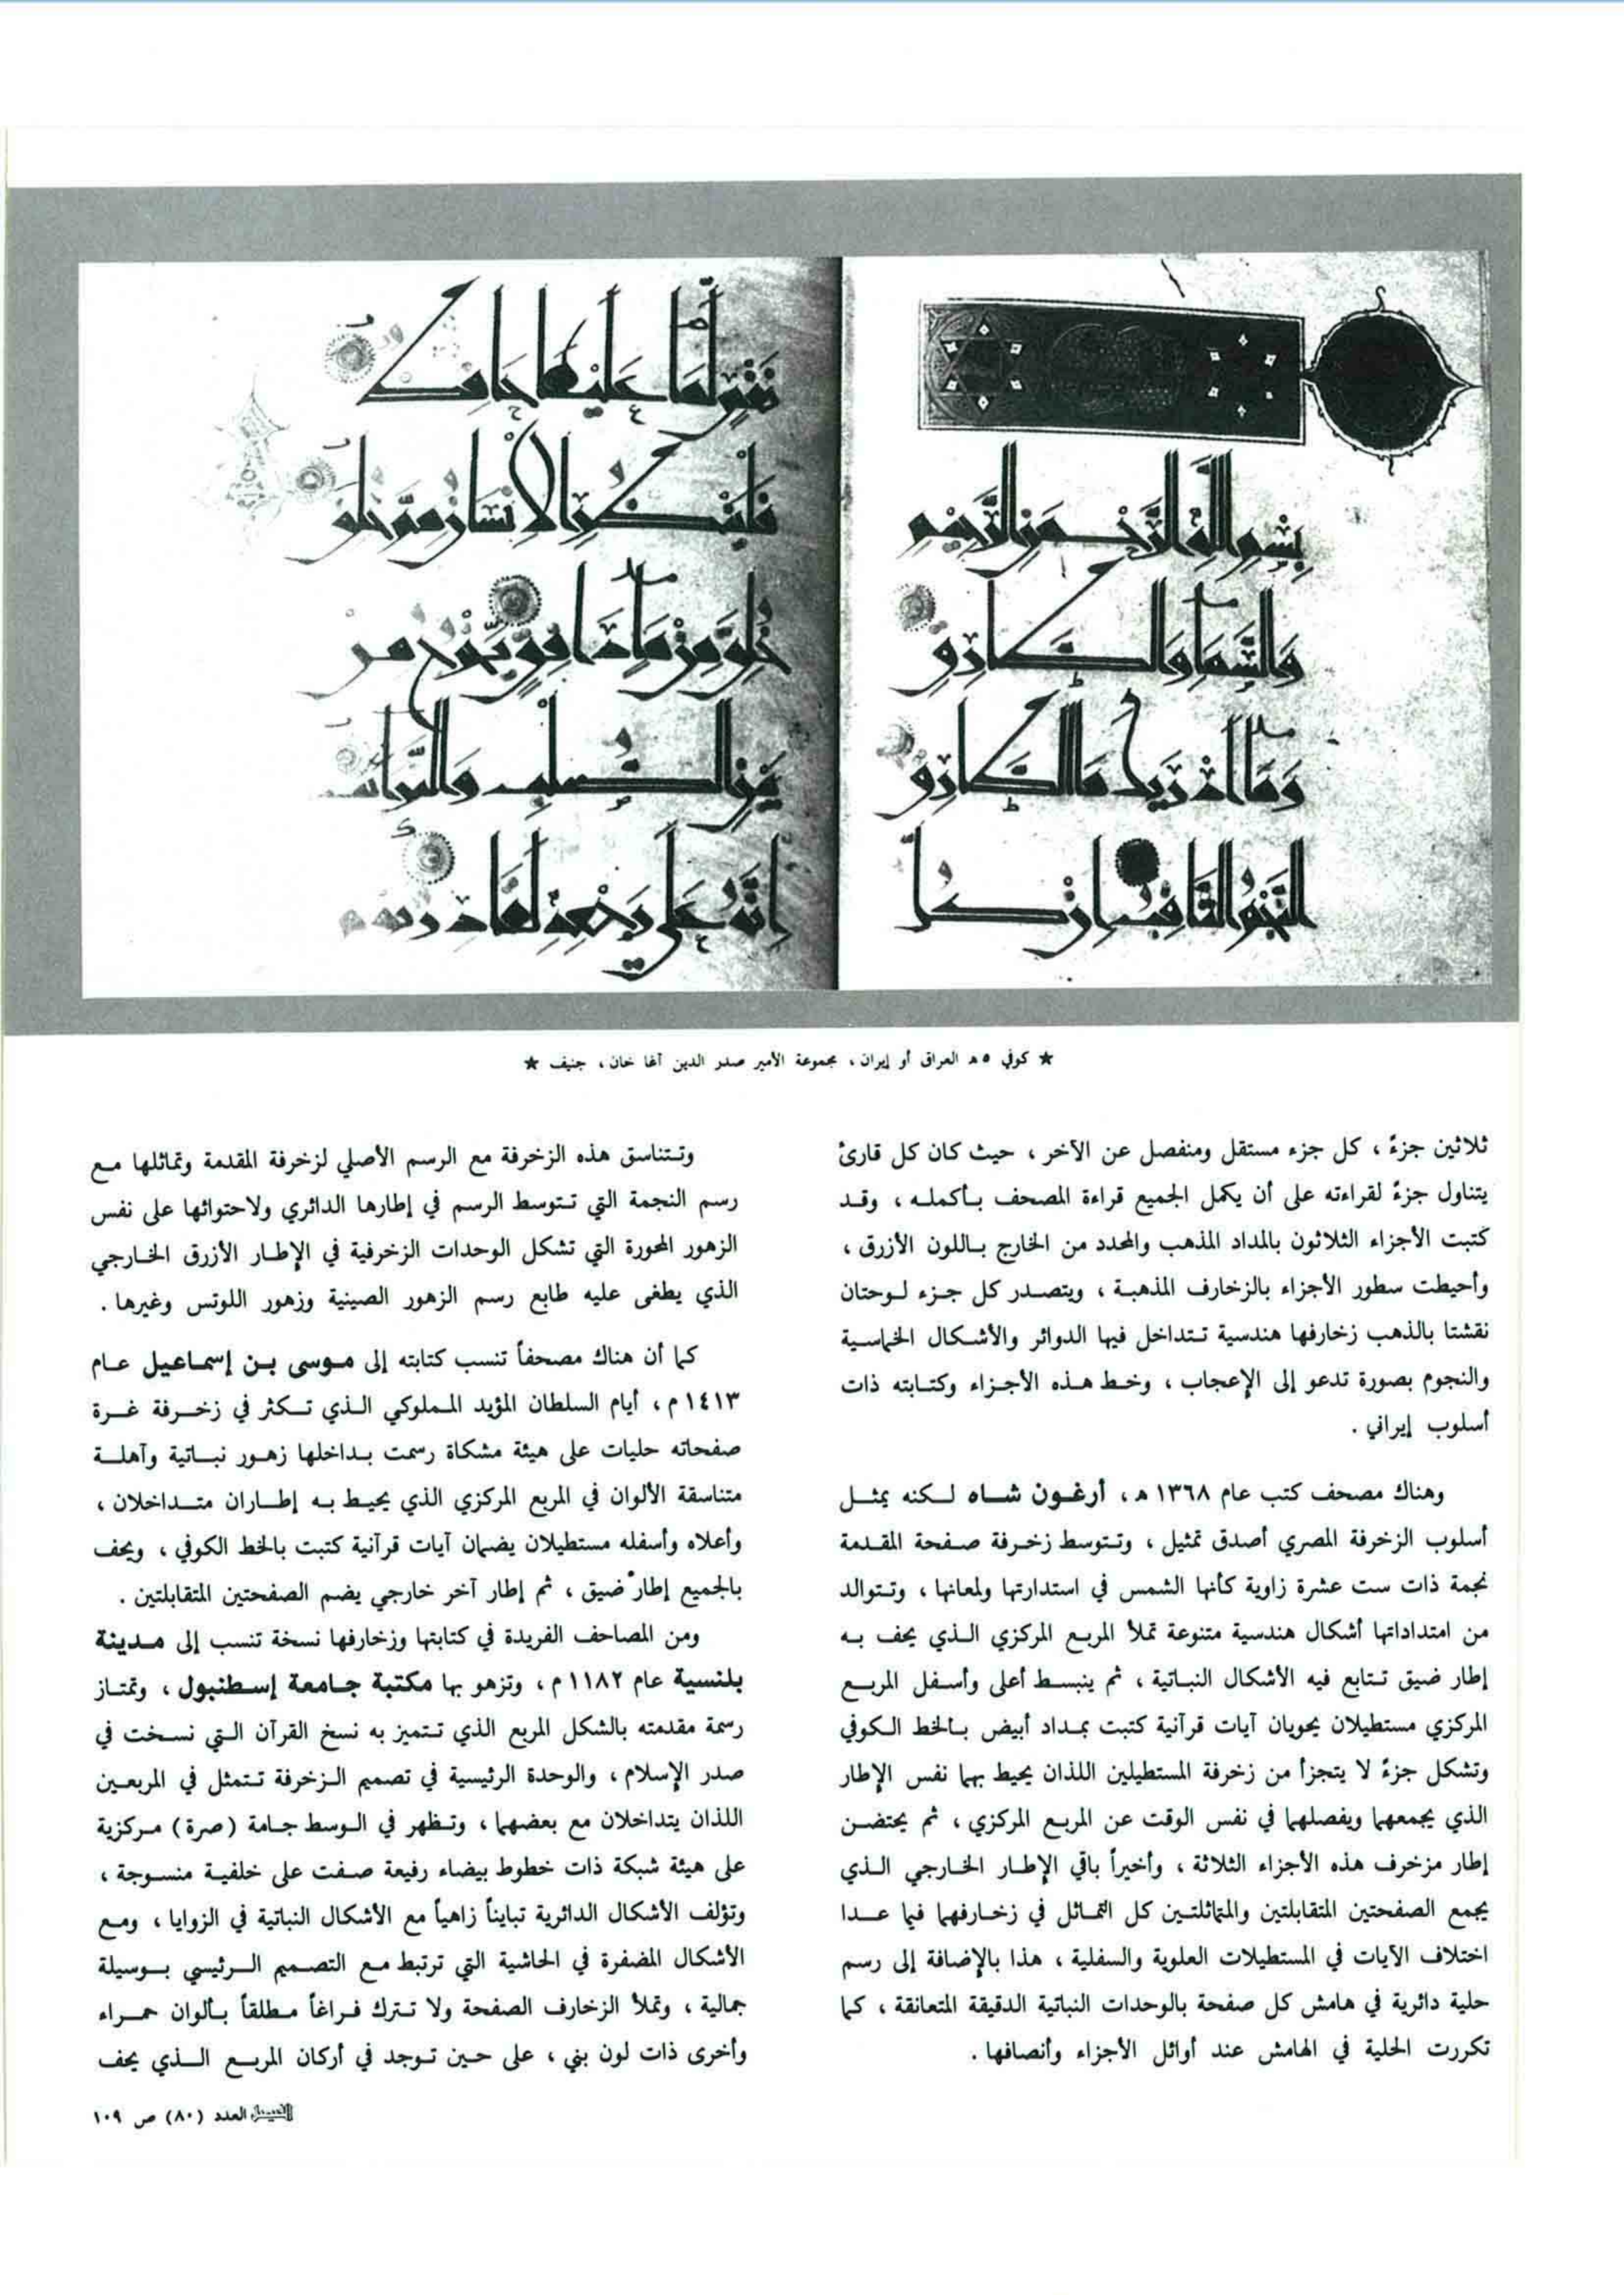 بِسْمِ اللَّهِ الرَّحْمَنِ الرَّحِيمِ
وَالسَّمَاءِ وَالطَّارِقِ
وَمَا أَدْرَيكَ مَا الطَّارِقُ
النَّجْمُ الثَّاقِبُ إِنْ كُلُّ
نَفْسٍ لَمَّا عَلَيْهَا حَافِظٌ
فَلْيَنْظُرِ الْإِنْسَانُ مِمَّ خُلِقَ
خُلِقَ مِنْ مَاءٍ دَافِقٍ يَخْرُجُ مِنْ
بَيْنِ الصُّلْبِ وَالتَّرَائِبِ
إِنَّهُ عَلَى رَجْعِهِ لَقَادِرٌ يَوْمَ
★ كوفي ٥ه العراق أو إيران ، مجموعة الأمير صدر الدين آغا خان ، جنيف ★
ثلاثين جزءً ، كل جزء مستقل ومنفصل عن الآخر ، حيث كان كل قارئ
يتناول جزءً لقراءته على أن يكمل الجميع قراءة المصحف بأكمله ، وقد
كتبت الأجزاء الثلاثون بالمداد المذهب والمحدد من الخارج باللون الأزرق ،
وأحيطت سطور الأجزاء بالزخارف المذهبة ، ويتصدر كل جزء لوحتان
نقشتا بالذهب زخارفها هندسية تتداخل فيها الدوائر والأشكال الخماسية
والنجوم بصورة تدعو إلى الإعجاب ، وخط هذه الأجزاء وكتابته ذات
أسلوب إيراني .
وهناك مصحف كتب عام ١٣٦٨ ه ، أرغون شاه لكنه يمثل
أسلوب الزخرفة المصري أصدق تمثيل ، وتتوسط زخرفة صفحة المقدمة
نجمة ذات ست عشرة زاوية كأنها الشمس في استدارتها ولمعانها ، وتتوالد
من امتداداتها أشكال هندسية متنوعة تملأ المربع المركزي الذي يحف به
إطار ضيق تتابع فيه الأشكال النباتية ، ثم ينبسط أعلى وأسفل المربع
المركزي مستطيلان يحويان آيات قرآنية كتبت بمداد أبيض بالخط الكوفي
وتشكل جزءً لا يتجزأ من زخرفة المستطيلين اللذان يحيط بهما نفس الإطار
الذي يجمعهما ويفصلهما في نفس الوقت عن المربع المركزي ، ثم يحتضن
إطار مزخرف هذه الأجزاء الثلاثة ، وأخيراً باقي الإطار الخارجي الذي
يجمع الصفحتين المتقابلتين والمتماثلتين كل التماثل في زخارفهما فيما عدا
اختلاف الآيات في المستطيلات العلوية والسفلية ، هذا بالإضافة إلى رسم
حلية دائرية في هامش كل صفحة بالوحدات النباتية الدقيقة المتعانقة ، كما
تكررت الحلية في الهامش عند أوائل الأجزاء وأنصافها .
وتتناسق هذه الزخرفة مع الرسم الأصلي لزخرفة المقدمة وتماثلها مع
رسم النجمة التي تتوسط الرسم في إطارها الدائري ولاحتوائها على نفس
الزهور المحورة التي تشكل الوحدات الزخرفية في الإطار الأزرق الخارجي
الذي يطغى عليه طابع رسم الزهور الصينية وزهور اللوتس وغيرها .
كما أن هناك مصحفاً تنسب كتابته إلى موسى بن إسماعيل عام
١٤١٣ م ، أيام السلطان المؤيد المملوكي الذي تكثر في زخرفة غرة
صفحاته حليات على هيئة مشكاة رسمت بداخلها زهور نباتية وآهلة
متناسقة الألوان في المربع المركزي الذي يحيط به إطاران متداخلان ،
وأعلاه وأسفله مستطيلان يضمان آيات قرآنية كتبت بالخط الكوفي ، ويحف
بالجميع إطار ضيق ، ثم إطار آخر خارجي يضم الصفحتين المتقابلتين .
ومن المصاحف الفريدة في كتابتها وزخارفها نسخة تنسب إلى مدينة
بلنسية عام ١١٨٢ م ، وتزهو بها مكتبة جامعة إسطنبول ، وتمتاز
رسمة مقدمته بالشكل المربع الذي تتميز به نسخ القرآن التي نسخت في
صدر الإسلام ، والوحدة الرئيسية في تصميم الزخرفة تتمثل في المربعين
اللذان يتداخلان مع بعضهما ، وتظهر في الوسط جامة (صرة) مركزية
على هيئة شبكة ذات خطوط بيضاء رفيعة صفت على خلفية منسوجة ،
وتؤلف الأشكال الدائرية تبايناً زاهياً مع الأشكال النباتية في الزوايا ، ومع
الأشكال المضفرة في الحاشية التي ترتبط مع التصميم الرئيسي بوسيلة
جمالية ، وتملأ الزخارف الصفحة ولا تترك فراغاً مطلقاً بألوان حمراء
وأخرى ذات لون بني ، على حين توجد في أركان المربع الذي يحف
الفيصل العدد (٨٠) ص ١٠٩